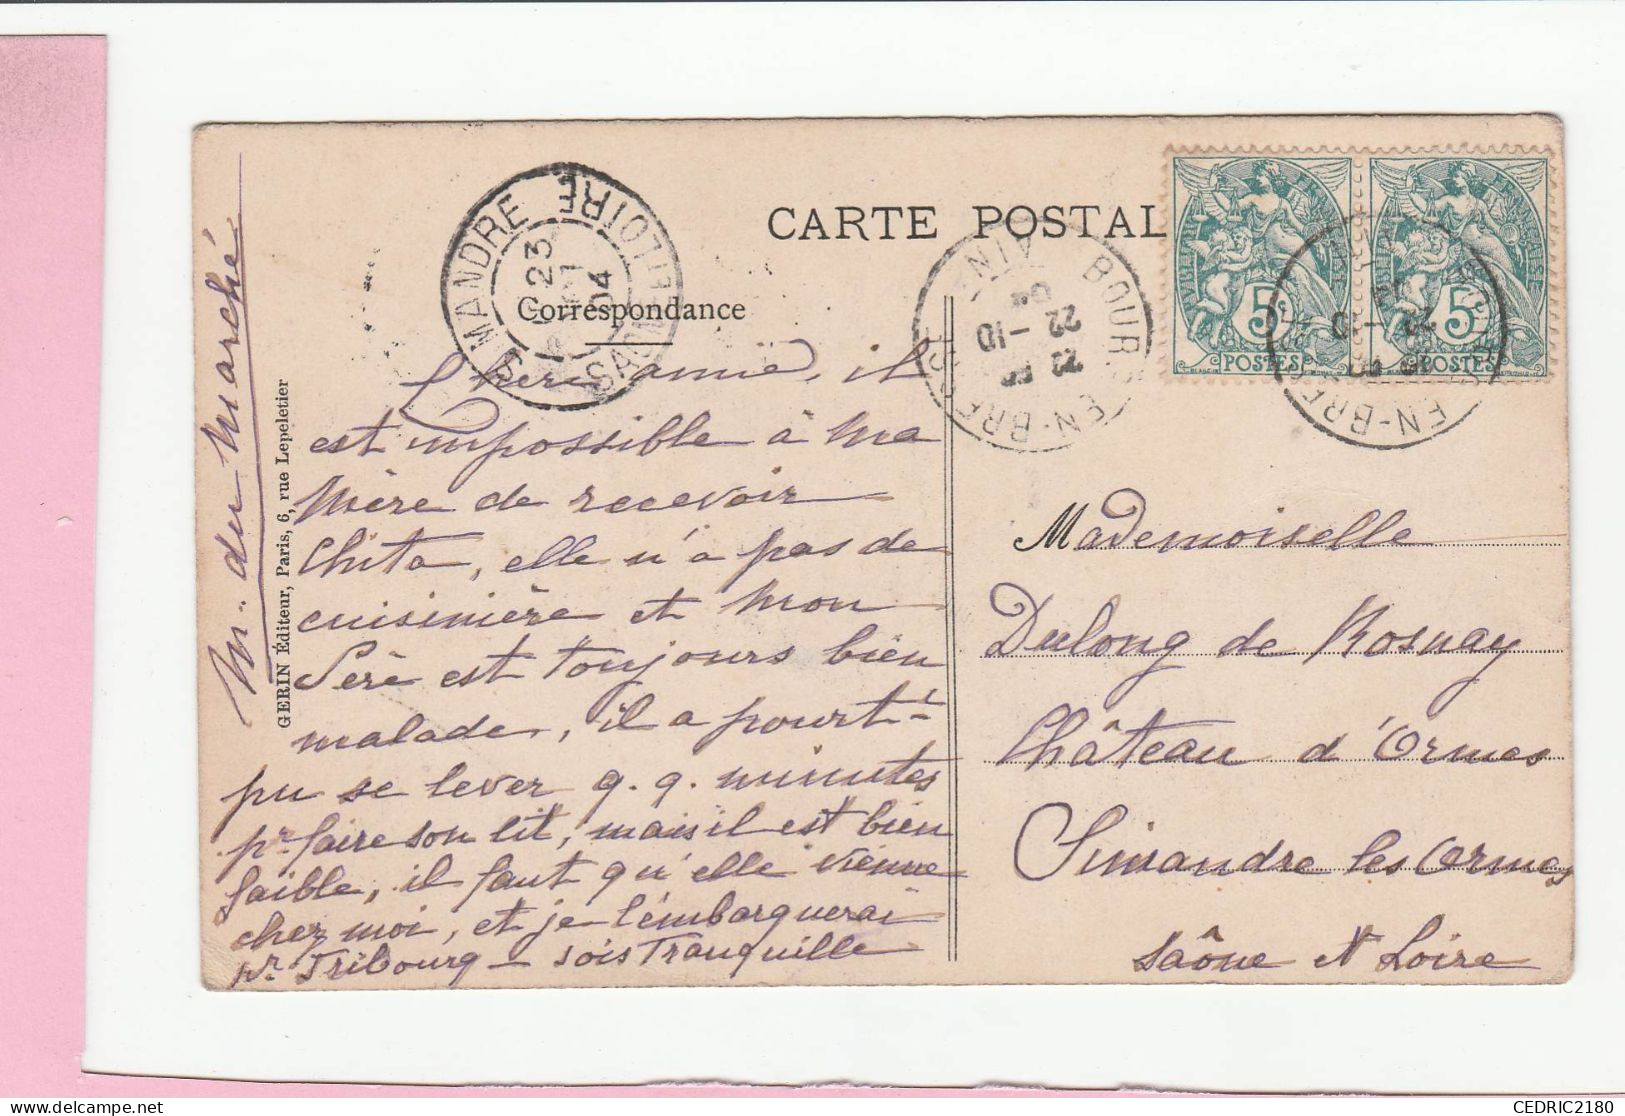 CARTE POSTAL
Correspondance
SIMANDRE
SAONE-ET-LOIRE
23
04
BOURG-EN-BRESSE
AIN
22-10
04
RÉPUBLIQUE FRANÇAISE
5c
POSTES
5c
POSTES
EN-BRESSE
Chère amie, il
est impossible à ma
Mère de recevoir
Chita, elle n'a pas de
cuisinière et mon
Père est toujours bien
malade, il a pourt-t
pu se lever q. q. minutes
pr faire son lit, mais il est bien
faible, il faut qu'elle vienne
chez moi, et je l'embarquerai
pr Fribourg - sois tranquille
M. du Marché
GERIN Éditeur, Paris, 6, rue Lepeletier
Mademoiselle
Dulong de Rosnay
Château d'Ormes
Simandre les Ormes
Saône et Loire
CEDRIC2180